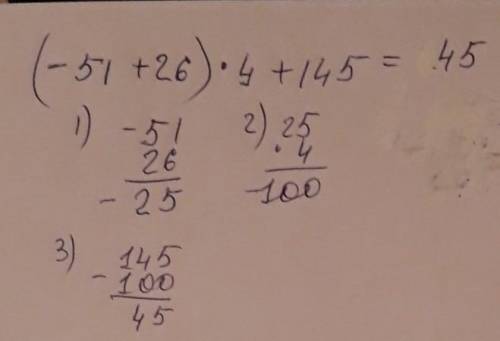 (-51 + 26) · 4 + 145 = 45
1) -51
26
- 25
2) 25
· 4
-100
3) 145
- 100
45